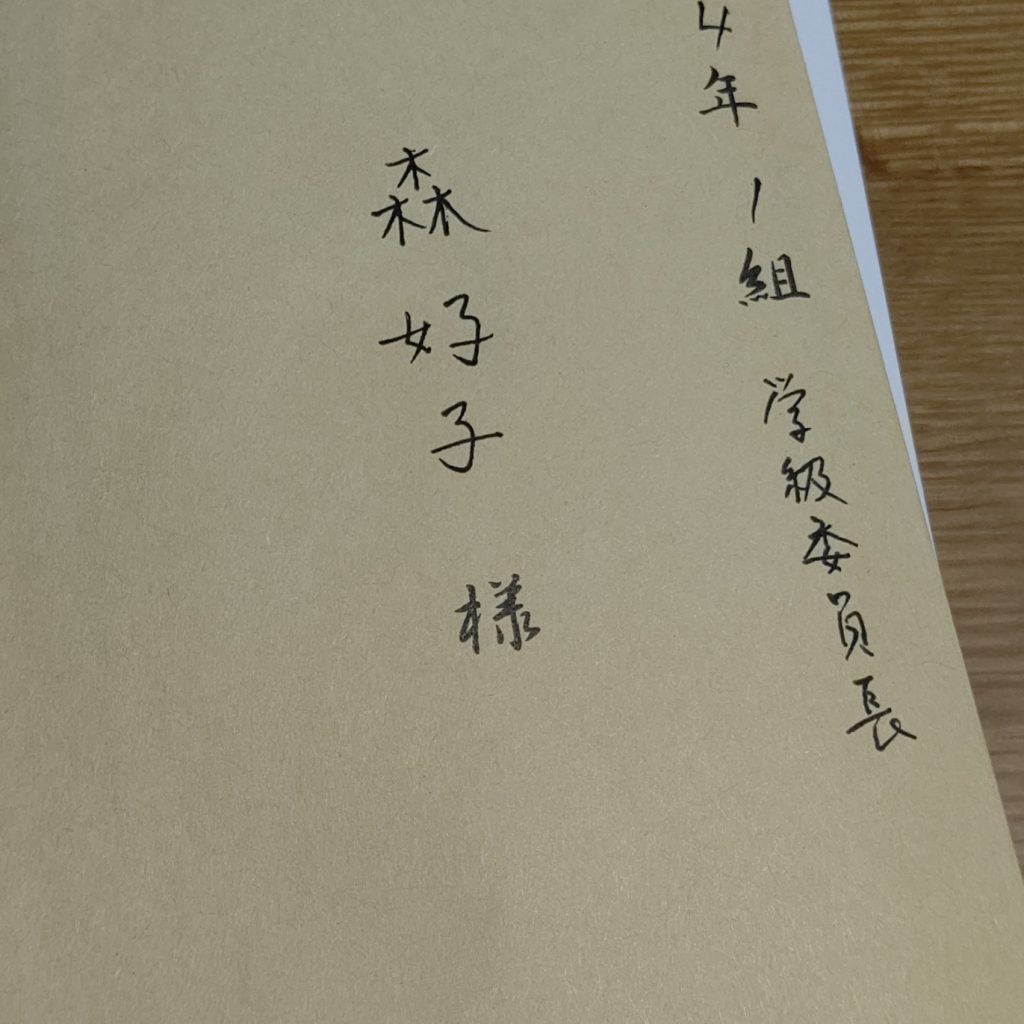 4年1組 学級委員長
森好子 様